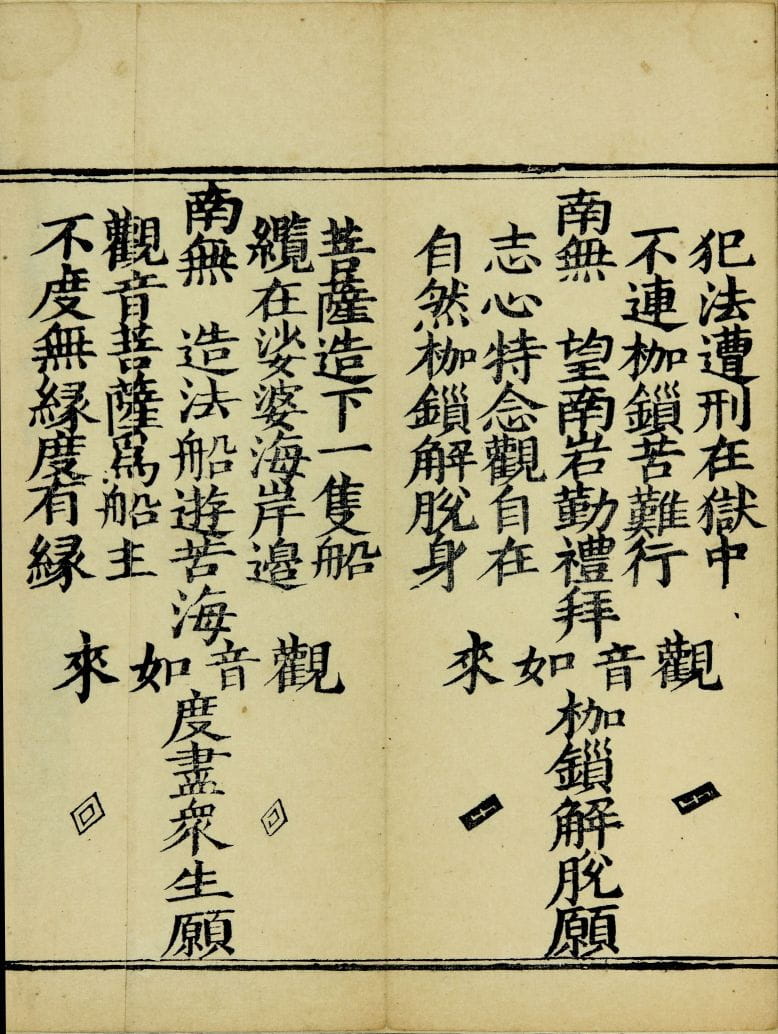 犯法遭刑在獄中
不連枷鎖苦難行
南無　望南岩勤禮拜
志心特念觀自在
自然枷鎖解脫身
觀音如來
枷鎖解脫願
菩薩造下一隻船
纜在娑婆海岸邊
南無　造法船遊苦海
觀音菩薩爲船主
不度無縁度有縁
觀音如來
度盡衆生願